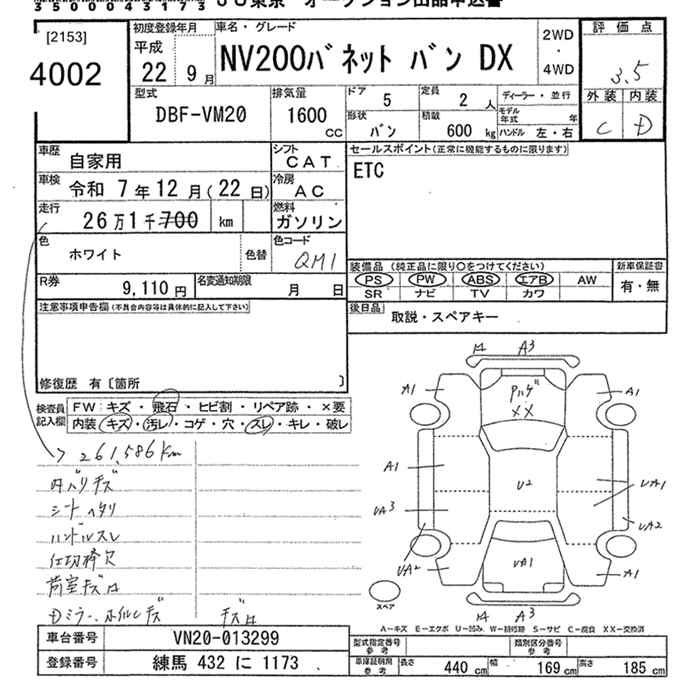 35000431173
JU東京 オークション出品申込書
[2153]
4002
初度登録年月
平成
22年9月
車名・グレード
NV200バネット バン DX
2WD
・
4WD
評価点
3.5
外装 内装
C D
型式
DBF-VM20
排気量
1600
CC
ドア
5
定員
2人
ディーラー・並行
形状
バン
積載
600kg
モデル年式 年
ハンドル 左・右
車歴
自家用
シフト
CAT
セールスポイント(正常に機能するものに限ります)
ETC
車検
令和 7年12月(22日)
冷房
AC
走行
26万1千700 km
燃料
ガソリン
色
ホワイト
色替
色コード
QM1
装備品 (純正品に限り○をつけてください)
新車保証書
PS PW ABS エアB AW
SR ナビ TV カワ
有・無
R券
9,110円
名変通知期限
月 日
後日品
取説・スペアキー
注意事項申告欄(不具合内容等は具体的に記入して下さい)
修復歴 有〔箇所 〕
検査員記入欄
FW:キズ・飛石・ヒビ割・リペア跡・×要
内装:キズ・汚レ・コゲ・穴・スレ・キレ・破レ
261,586km
内バリキズ
シートヘタリ
ハンドルスレ
仕切棒欠
荷室キズ
Dミラー、ホイルCキズ
A3
A1
A1
XX
A1
U2
UA1
UA3
UA2
UA2
UA1
A1
スペア
A3
A-キズ E-エクボ U-凹み W-補修跡 S-サビ C-腐食 XX-交換済
車台番号
VN20-013299
登録番号
練馬 432 に 1173
型式指定番号
参考
類別区分番号
参考
車庫証明用
参考
長さ 440cm
幅 169cm
高さ 185cm